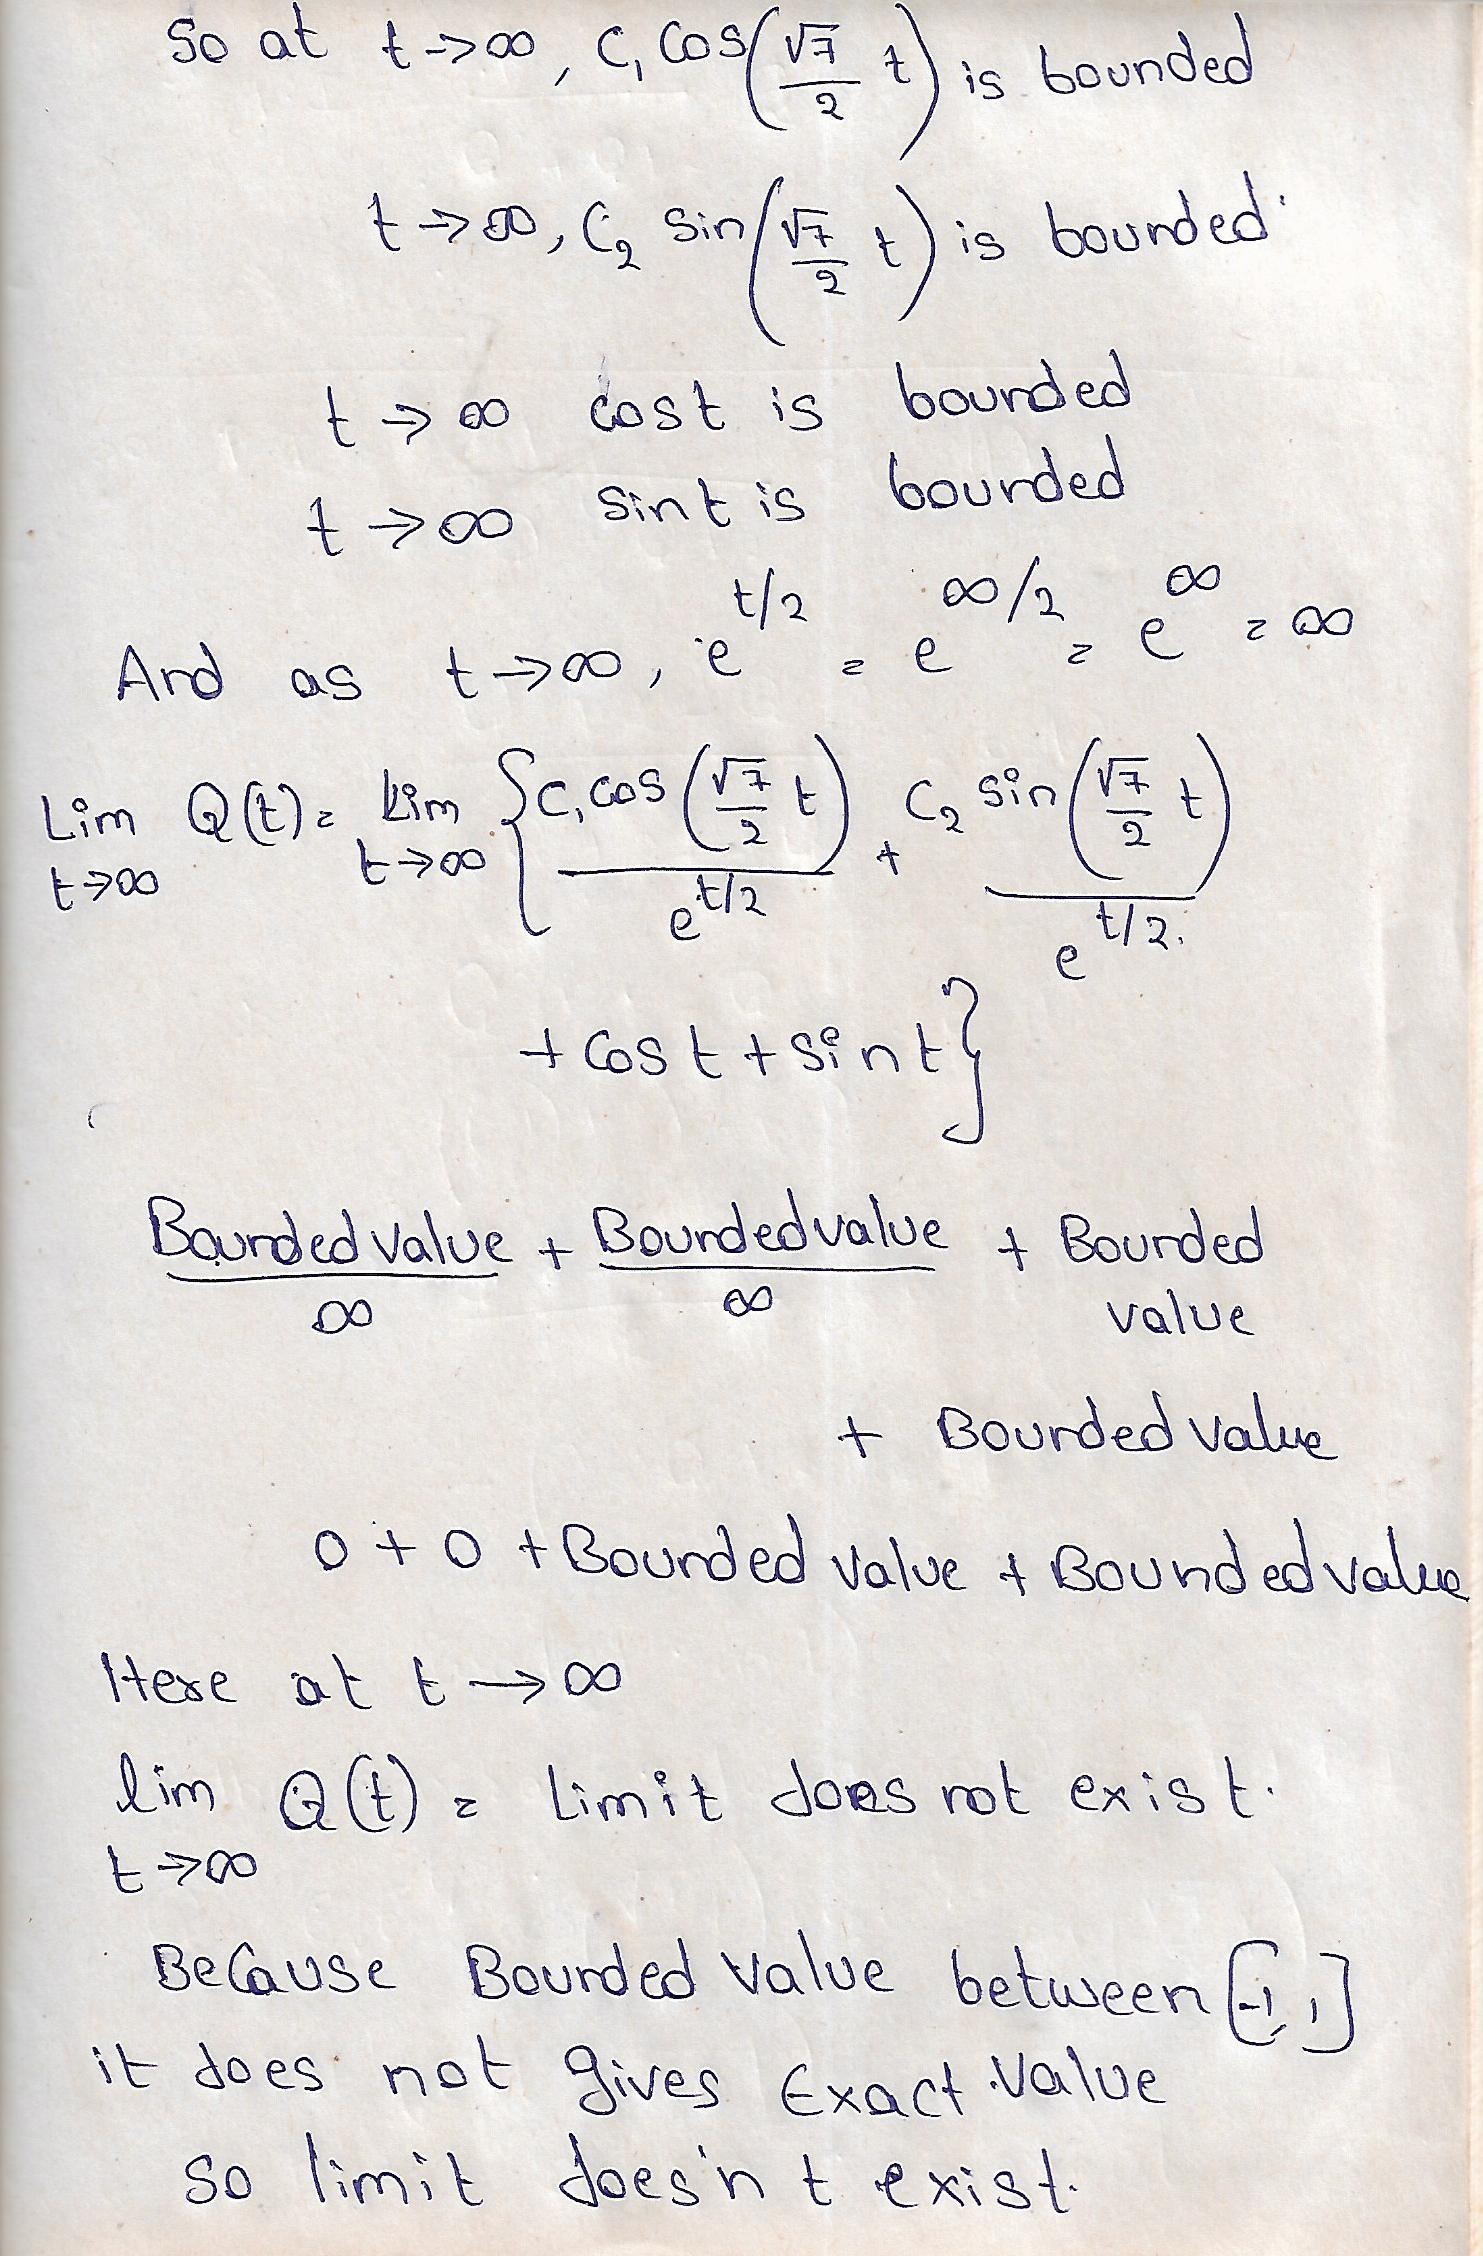 So at t→∞, C₁ Cos(√7/2 t) is bounded
t→∞, C₂ Sin(√7/2 t) is bounded
t→∞ cost is bounded
t→∞ Sint is bounded
And as t→∞, e^t/2 = e^∞/2 = e^∞ = ∞
Lim t→∞ Q(t) = Lim t→∞ {C₁ cos(√7/2 t)/e^t/2 + C₂ sin(√7/2 t)/e^t/2
+ Cos t + sin t}
Bounded value/∞ + Bounded value/∞ + Bounded value
+ Bounded value
0 + 0 + Bounded value + Bounded value
Here at t→∞
lim t→∞ Q(t) = Limit does not exist.
Because Bounded value between [-1, 1]
it does not gives Exact value
so limit does'n t exist.